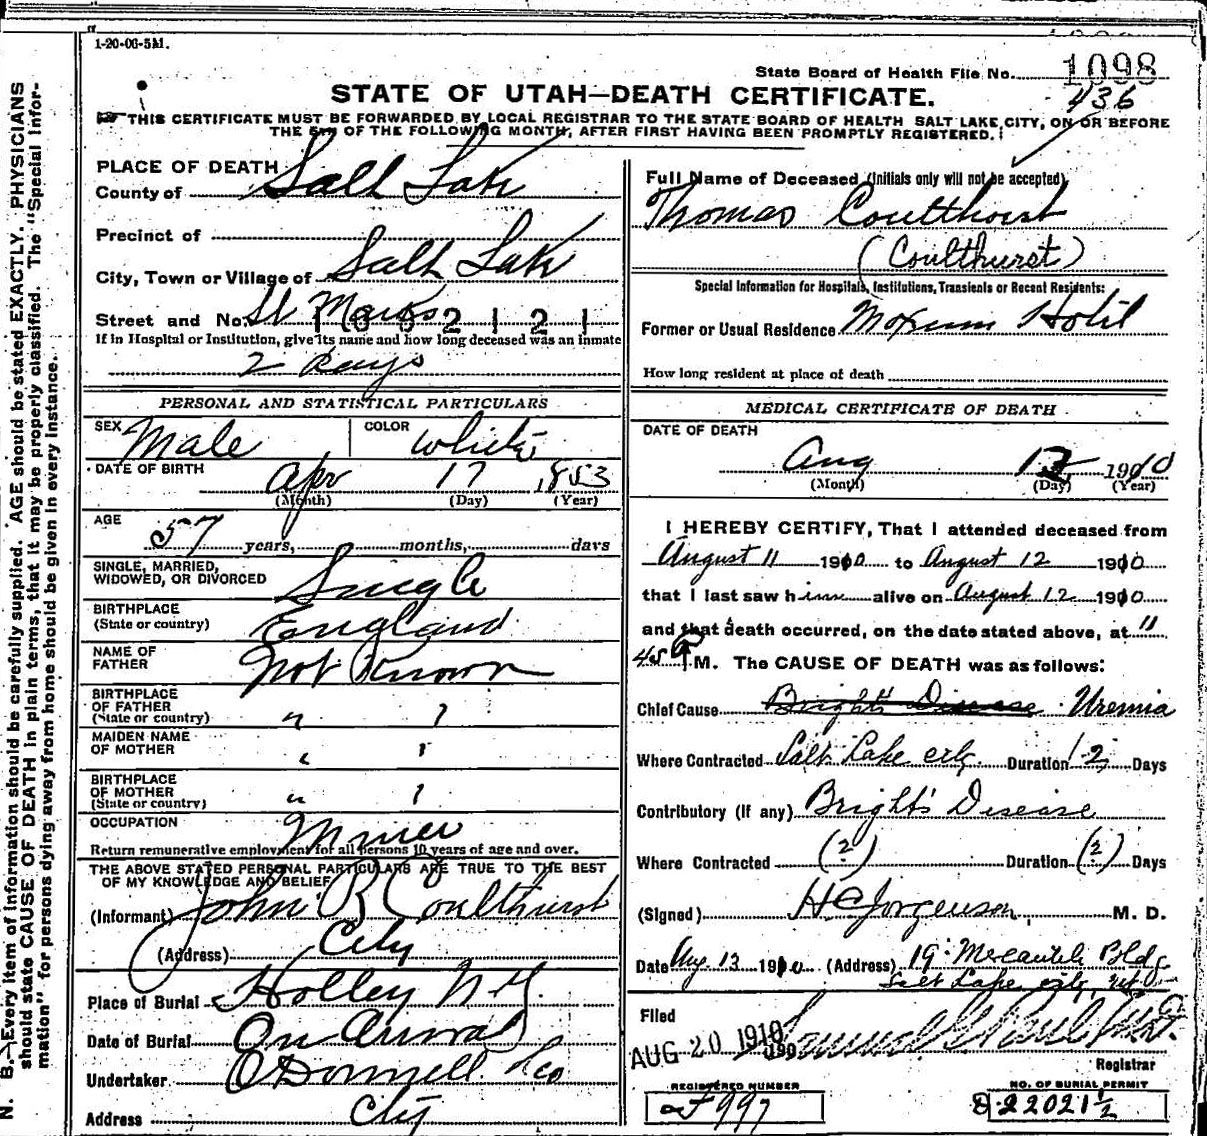 1-20-06-5M.
State Board of Health File No. 1098
436
STATE OF UTAH—DEATH CERTIFICATE.
THIS CERTIFICATE MUST BE FORWARDED BY LOCAL REGISTRAR TO THE STATE BOARD OF HEALTH SALT LAKE CITY, ON OR BEFORE
THE 5TH OF THE FOLLOWING MONTH, AFTER FIRST HAVING BEEN PROMPTLY REGISTERED.
N. B.—Every item of information should be carefully supplied. AGE should be stated EXACTLY. PHYSICIANS
should state CAUSE OF DEATH in plain terms, that it may be properly classified. The "Special Infor-
mation" for persons dying away from home should be given in every instance.
PLACE OF DEATH
County of Salt Lake
Precinct of
City, Town or Village of Salt Lake
Street and No. St Marks
If in Hospital or Institution, give its name and how long deceased was an inmate
2 days
PERSONAL AND STATISTICAL PARTICULARS
SEX Male COLOR White
DATE OF BIRTH Apr 17 1853
(Month) (Day) (Year)
AGE 57 years, months, days
SINGLE, MARRIED,
WIDOWED, OR DIVORCED Single
BIRTHPLACE
(State or country) England
NAME OF
FATHER Not Known
BIRTHPLACE
OF FATHER
(State or country) " "
MAIDEN NAME
OF MOTHER " "
BIRTHPLACE
OF MOTHER
(State or country) " "
OCCUPATION Miner
Return remunerative employment for all persons 10 years of age and over.
THE ABOVE STATED PERSONAL PARTICULARS ARE TRUE TO THE BEST
OF MY KNOWLEDGE AND BELIEF
(Informant) John B Coulthurst
(Address) City
Place of Burial Holley N.Y.
Date of Burial On Arrival
Undertaker O'Donnell & Co
Address City
Full Name of Deceased (Initials only will not be accepted)
Thomas Coultthorst
(Coulthurst)
Special Information for Hospitals, Institutions, Transients or Recent Residents:
Former or Usual Residence Moxum Hotel
How long resident at place of death
MEDICAL CERTIFICATE OF DEATH
DATE OF DEATH
Aug 12 1910
(Month) (Day) (Year)
I HEREBY CERTIFY, That I attended deceased from
August 11 1910 to August 12 1910
that I last saw him alive on August 12 1910
and that death occurred, on the date stated above, at 11
45 P M. The CAUSE OF DEATH was as follows:
Chief Cause Bright's Disease Uremia
Where Contracted Salt Lake city Duration 2 Days
Contributory (If any) Bright's Disease
Where Contracted (?) Duration (?) Days
(Signed) H C Jorgenson, M. D.
Date Aug. 13 1910 (Address) 19 Mercantile Bldg
Salt Lake city, Utah
Filed
AUG 20 1910 190
Registrar
REGISTERED NUMBER
F 997
NO. OF BURIAL PERMIT
22021½